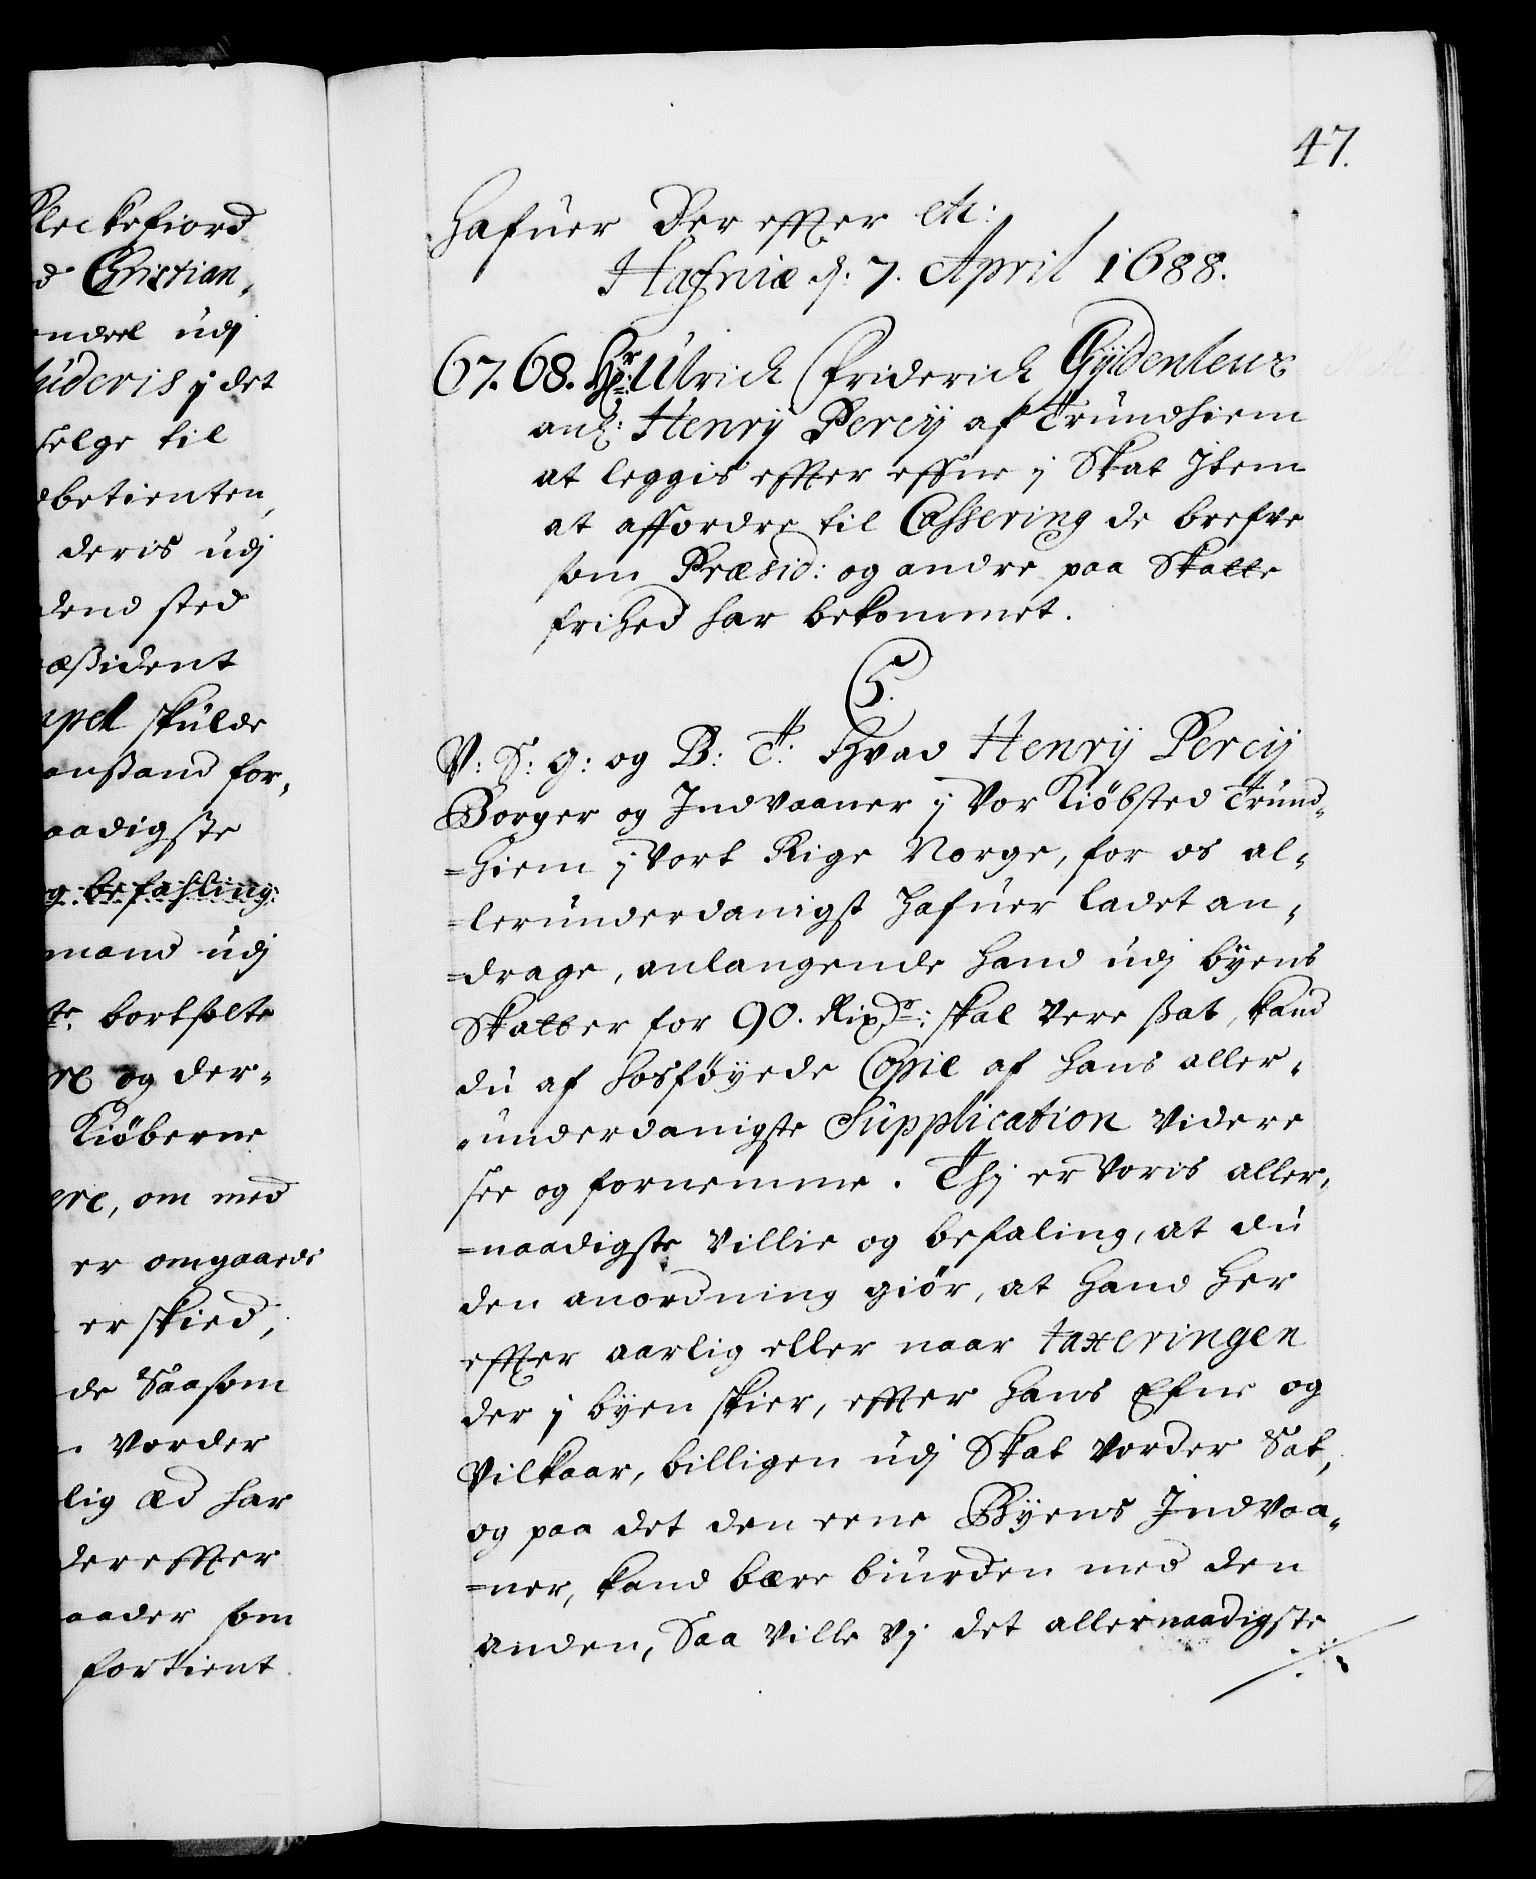 Fleckefiord
d Christian,
ndeel udj
huderis i det
selge til
dbetienten,
deris udj
dend sted
æßident
apel skulde
anstand for,
aadigste
g befahling:
mand udj
te bortsolte
re og der-
Kiöberne
ere, om med
er omgaaede
er skied,
de Saasom
n vorder
lig æd har
der effter
aader som
fortient
47.
hafuer der effter etc:
Hafniæ d: 7. April 1688.
67. 68. Hr: Ulrich Friderich Gyldenleur
anl: Henrij Percij af Trundhiem
at leggis effter effne j Skat Item
at affordre til Cassering de brefve
som Præsid: og andre paa Skatte
frihed har bekommet.
C5.
V: S: G: og B: T: Hvad Henrij Percij
Borger og Indvaaner j vor Kiöbsted Trund-
=hiem j vort Rige Norge, for os al-
=lerunderdanigst hafuer ladet an-
=drage, anlangende hand udj byens
Skatter for 90. Rixdr: skal vere ßat, kand
du af hosföyede Copie af hans aller-
=underdanigste Supplication videre
see og fornemme. Thj er voris aller-
=naadigste villie og befaling, at du
den anordning giör, at hand her
effter aarlig eller naar taxeringen
der j byen skier, effter hans Efne og
vilkaar, billigen udj Skat vorder Sat,
og paa det den eene Byens Indvaa-
=ner, kand bære biurden med den
anden, Saa ville vj det allernaadigste
./.